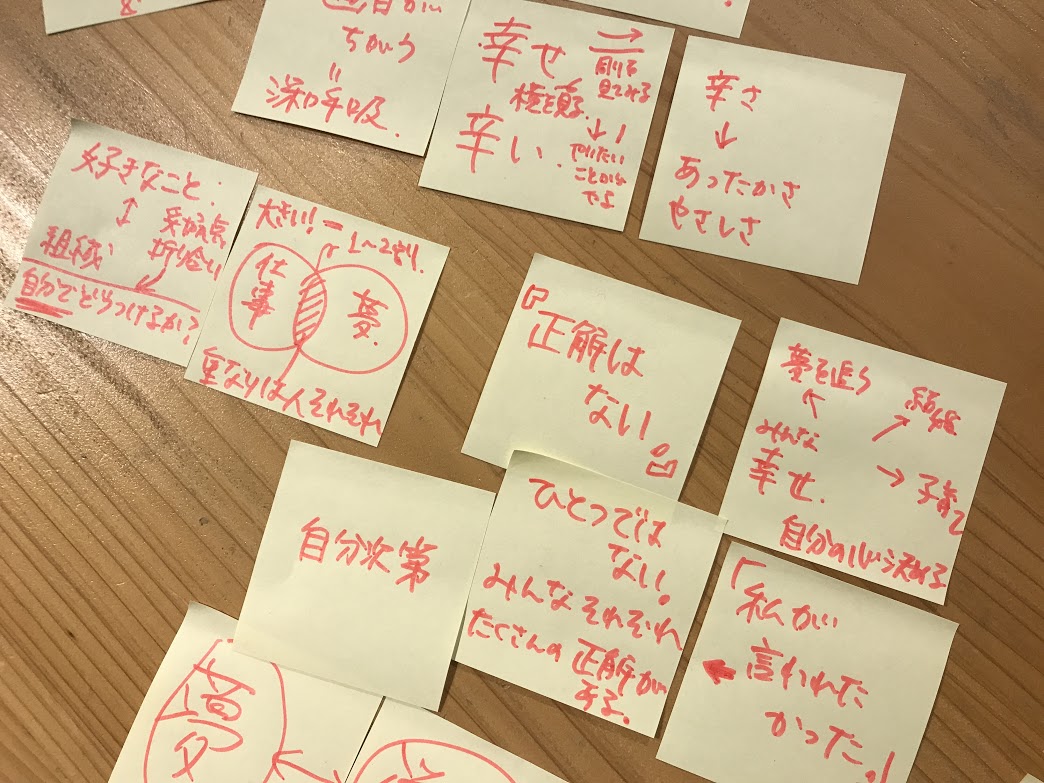 ちがう
〃
深呼吸.
幸せ
辛い.
極を見る
削る
見てみる
↓
やりたい
ことから
やる
辛さ
↓
あったかさ
やさしさ
好きなこと:
↕
組織
折り合い
自分でどうつけるか?
大きい! = 1〜2割り.
仕事
夢.
重なりは人それぞれ
『正解は
ない』
夢を追う
結婚
みんな
幸せ.
→ 子育て
自分の心が決める
自分次第
ひとつでは
ない。
みんなそれぞれ
たくさんの正解が
ある。
「私が
言われた
かった。」
夢